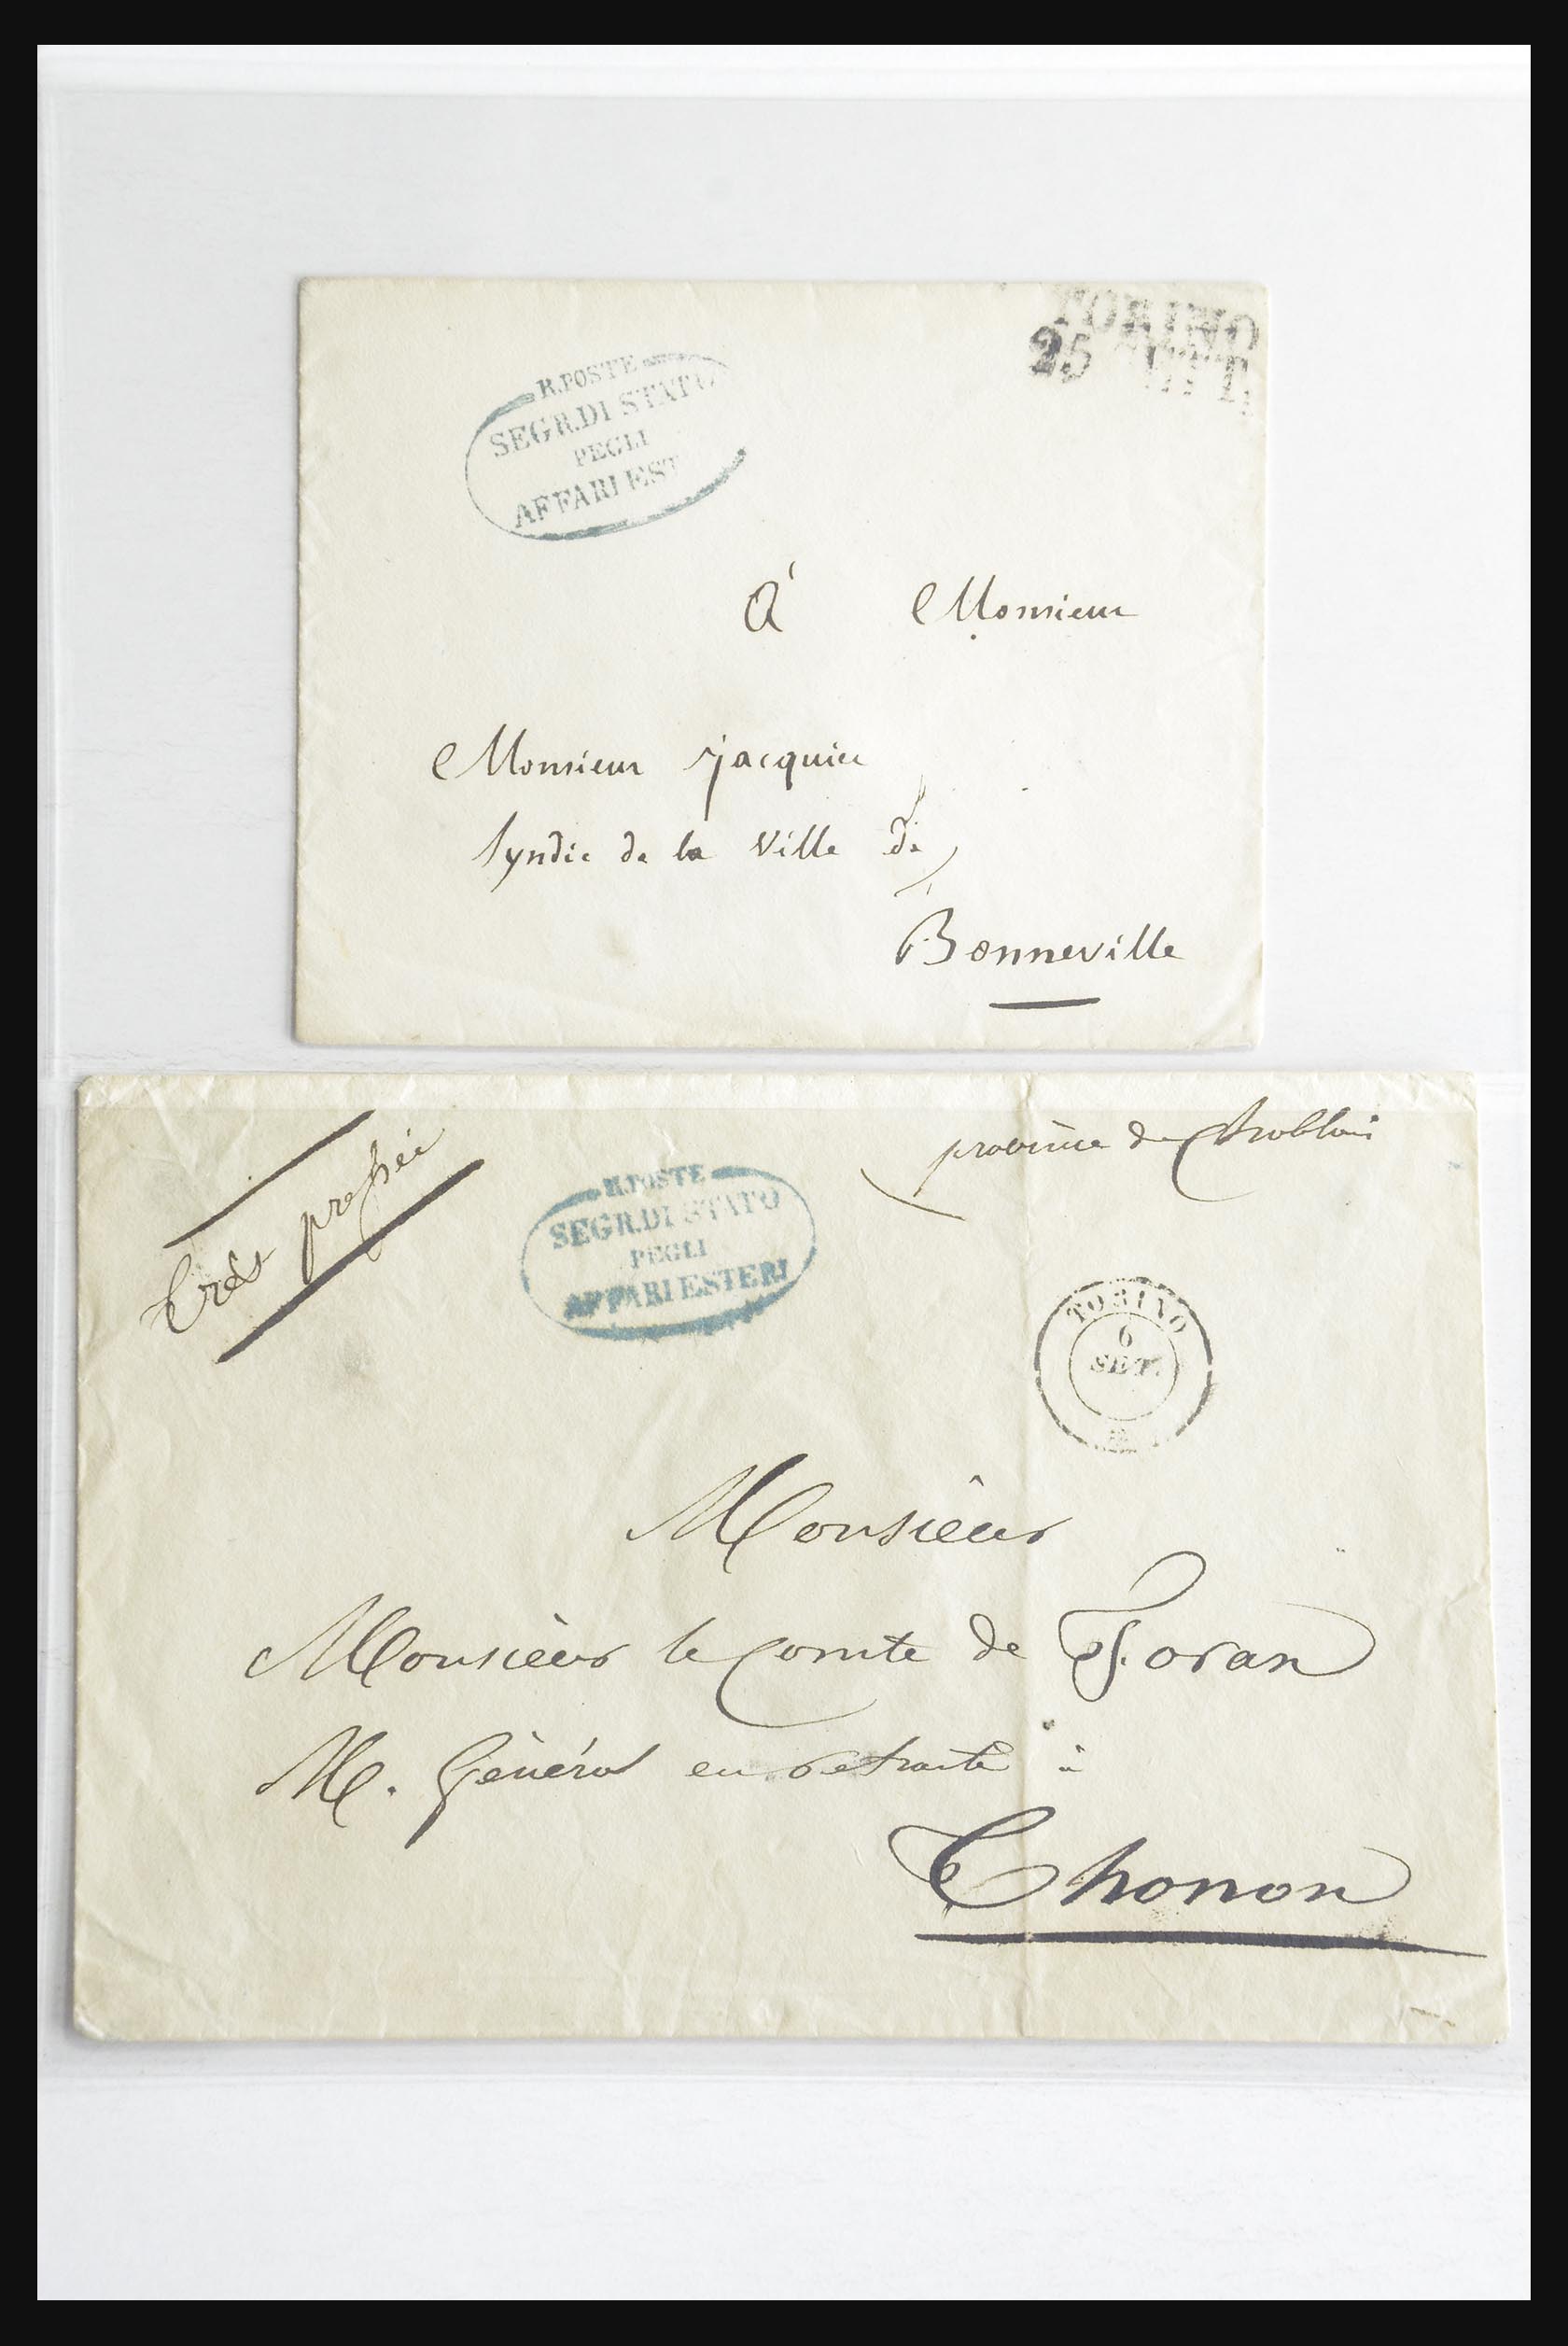 R. POSTE
SEGR. DI STATO
PEGLI
AFFARI EST
TORINO
25 SETT.
À Monsieur
Monsieur Jacquier
Syndic de la Ville de
Bonneville
très pressée
R. POSTE
SEGR. DI STATO
PEGLI
AFFARI ESTERI
province de Chablais
TORINO
6
SET.
Monsieur
Monsieur le Comte de Foran
M. Général en retraite à
Thonon